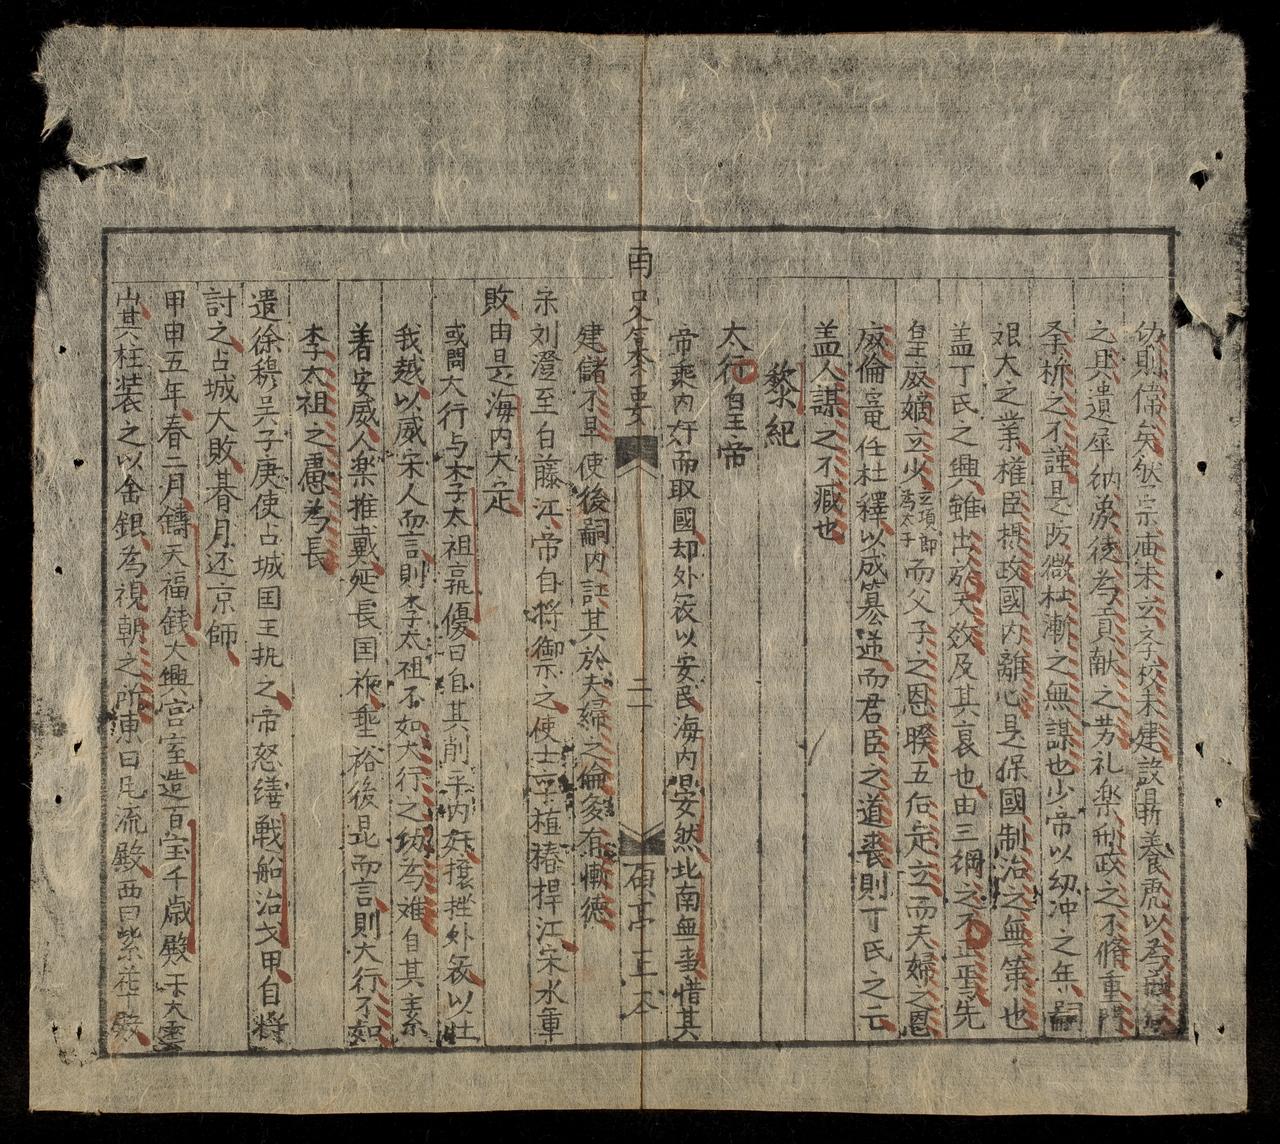 偽則偉矣然宗庙未立孝校未建設具鼎養虎以為戒虐
之具遺犀納象徒為貢献之労礼楽刑政之不脩重門
柝之不謹是防微杜漸之無謀也少帝以幼冲之年嗣
艰大之業権臣摂政國内離心是保國制治之無策也
盖丁氏之興雖出於天效及其衰也由三綱之不正蚩先
皇庶嫡立少立項郎為太子而父子之恩暌五后並立而夫婦之恩
廃倫竜任杜釋以成簒逆而君臣之道喪則丁氏之亡
盖人謀之不臧也
黎紀
大行皇帝
帝乗内奸而取國却外宼以安民海内晏然北南無事惜其
南史纂要
二
碩亭正本
建儲不早使後嗣内訌其於夫婦之倫多有慚德
宗刘澄至白藤江帝自将御之使士卒植樁捍江宋水軍
敗由是海内大定
或問大行与李太祖孰優曰自其削平内奸攘挫外宼以壮
我越以威宋人而言則李太祖不如大行之功為难自其素
著安威人楽推戴延長囯祚垂裕後昆而言則大行不如
李太祖之慮為長
遣徐穆吴子庚使占城囯王执之帝怒繕戦船治戈甲自将
討之占城大敗朞月还京師
甲申五年春二月鑄天福銭大興宮室造百宝千歳殿于大雲
山其柱装之以金銀為視朝之所東曰凨流殿西曰紫花殿